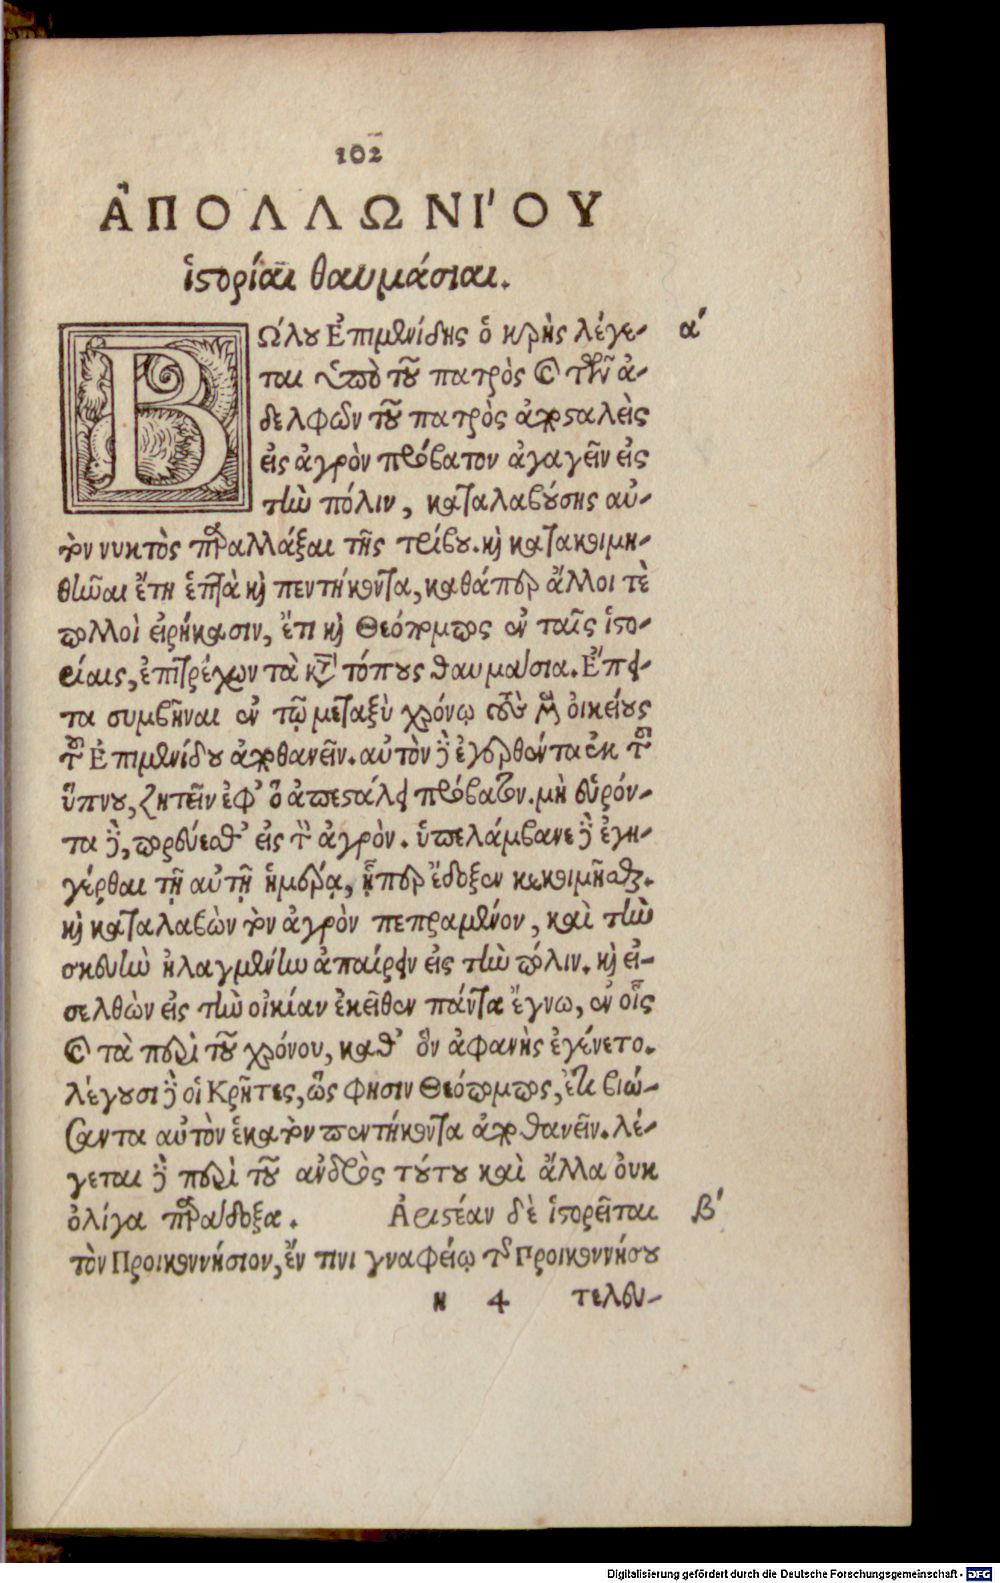 102
ἈΠΟΛΛΩΝΙ΄ΟΥ
ἱστορίαι θαυμάσιαι.
ΒΩ΄λου Ἐπιμενίδης ὁ κρὴς λέγε- α΄
ται ὑπὸ τοῦ πατρὸς καὶ τῶν ἀ-
δελφῶν τοῦ πατρὸς ἀποσταλεὶς
εἰς ἀγρὸν πρόβατον ἀγαγεῖν εἰς
τὴν πόλιν, καταλαβούσης αὐ-
τὸν νυκτὸς παραλλάξαι τῆς τρίβου. καὶ κατακοιμη-
θῆναι ἔτη ἑπτὰ καὶ πεντήκοντα, καθάπερ ἄλλοι τὲ
πολλοὶ εἰρήκασιν, ἔτι καὶ Θεόπομπος ἐν ταῖς ἱστο-
ρίαις, ἐπιτρέχων τὰ κατὰ τόπους θαυμάσια. Ἔπει-
τα συμβῆναι ἐν τῷ μεταξὺ χρόνῳ τοὺς μὲν οἰκείους
τοῦ Ἐπιμενίδου ἀποθανεῖν. αὐτὸν δὲ ἐγερθέντα ἐκ τοῦ
ὕπνου, ζητεῖν ἐφ᾽ ὃ ἀπεστάλη πρόβατον. μὴ εὑρόν-
τα δὲ, πορεύεσθ᾽ εἰς τὸν ἀγρὸν. ὑπελάμβανε δὲ ἐγη-
γέρθαι τῇ αὐτῇ ἡμέρᾳ, ᾗπερ ἔδοξεν κεκοιμῆσθαι.
καὶ καταλαβὼν τὸν ἀγρὸν πεπραμένον, καὶ τὴν
σκευὴν ἠλαγμένην ἀπαίρειν εἰς τὴν πόλιν. καὶ εἰ-
σελθὼν εἰς τὴν οἰκίαν ἐκεῖθεν πάντα ἔγνω, ἐν οἷς
καὶ τὰ περὶ τοῦ χρόνου, καθ᾽ ὃν ἀφανὴς ἐγένετο.
λέγουσι δὲ οἱ Κρῆτες, ὥς φησιν Θεόπομπος, ἔτι βιώ-
σαντα αὐτὸν ἑκατὸν πεντήκοντα ἀποθανεῖν. λέ-
γεται δὲ περὶ τοῦ ἀνδρὸς τούτου καὶ ἄλλα οὐκ
ὀλίγα παράδοξα. Ἀριστέαν δὲ ἱστορεῖται β΄
τὸν Προικοννήσιον, ἔν τινι γναφείῳ τῆς Προικοννήσου
n 4 τελευ-
Digitalisierung gefördert durch die Deutsche Forschungsgemeinschaft - DFG